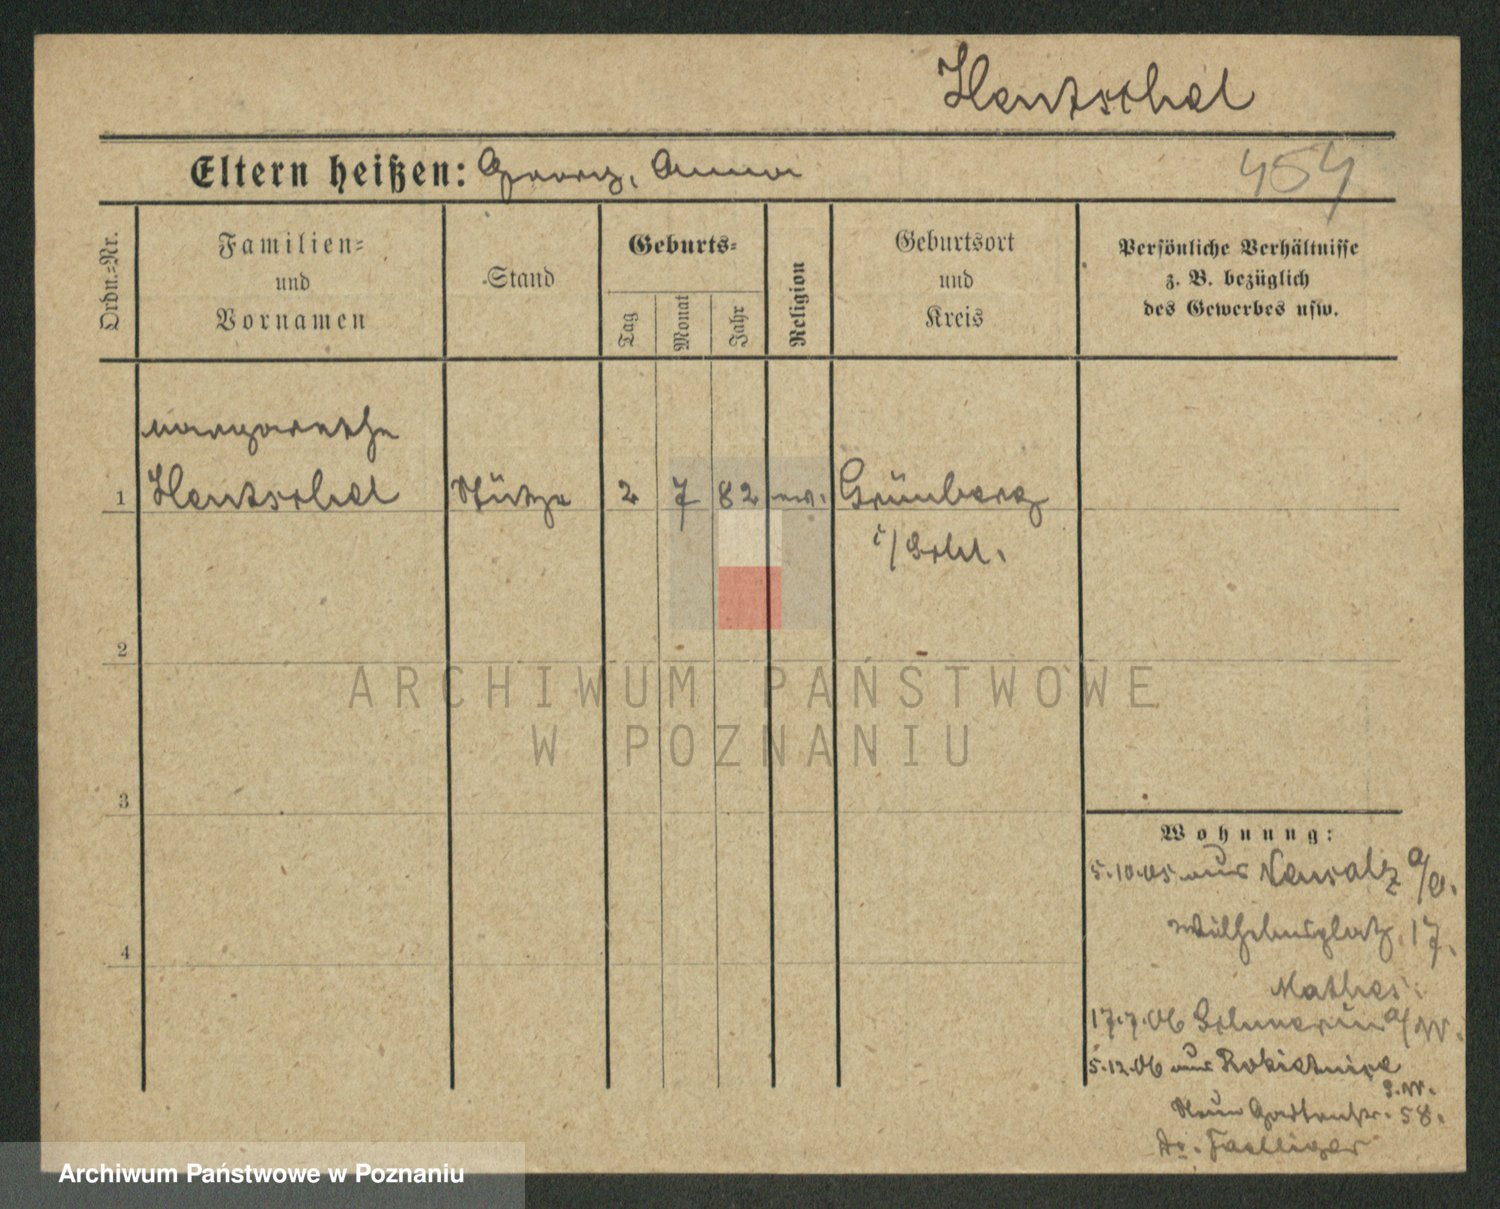 Hentschel
Eltern heißen: Georg, Anna
454
Ordn.=Nr.
Familien=
und
Vornamen
Stand
Geburts=
Tag
Monat
Jahr
Religion
Geburtsort
und
Kreis
Persönliche Verhältnisse
z. B. bezüglich
des Gewerbes usw.
Margarethe
1 Hentschel Stütze 2 7 82 ev. Grünberg
i/Schl.
2
ARCHIWUM PAŃSTWOWE
W POZNANIU
3
Wohnung:
5.10.05 aus Neusalz a/O.
Wilhelmsplatz 17.
Mathes
17.7.06 a/W.
4
5.12.06 aus Rokietnice
Neue Gartenstr. 58.
Archiwum Państwowe w Poznaniu